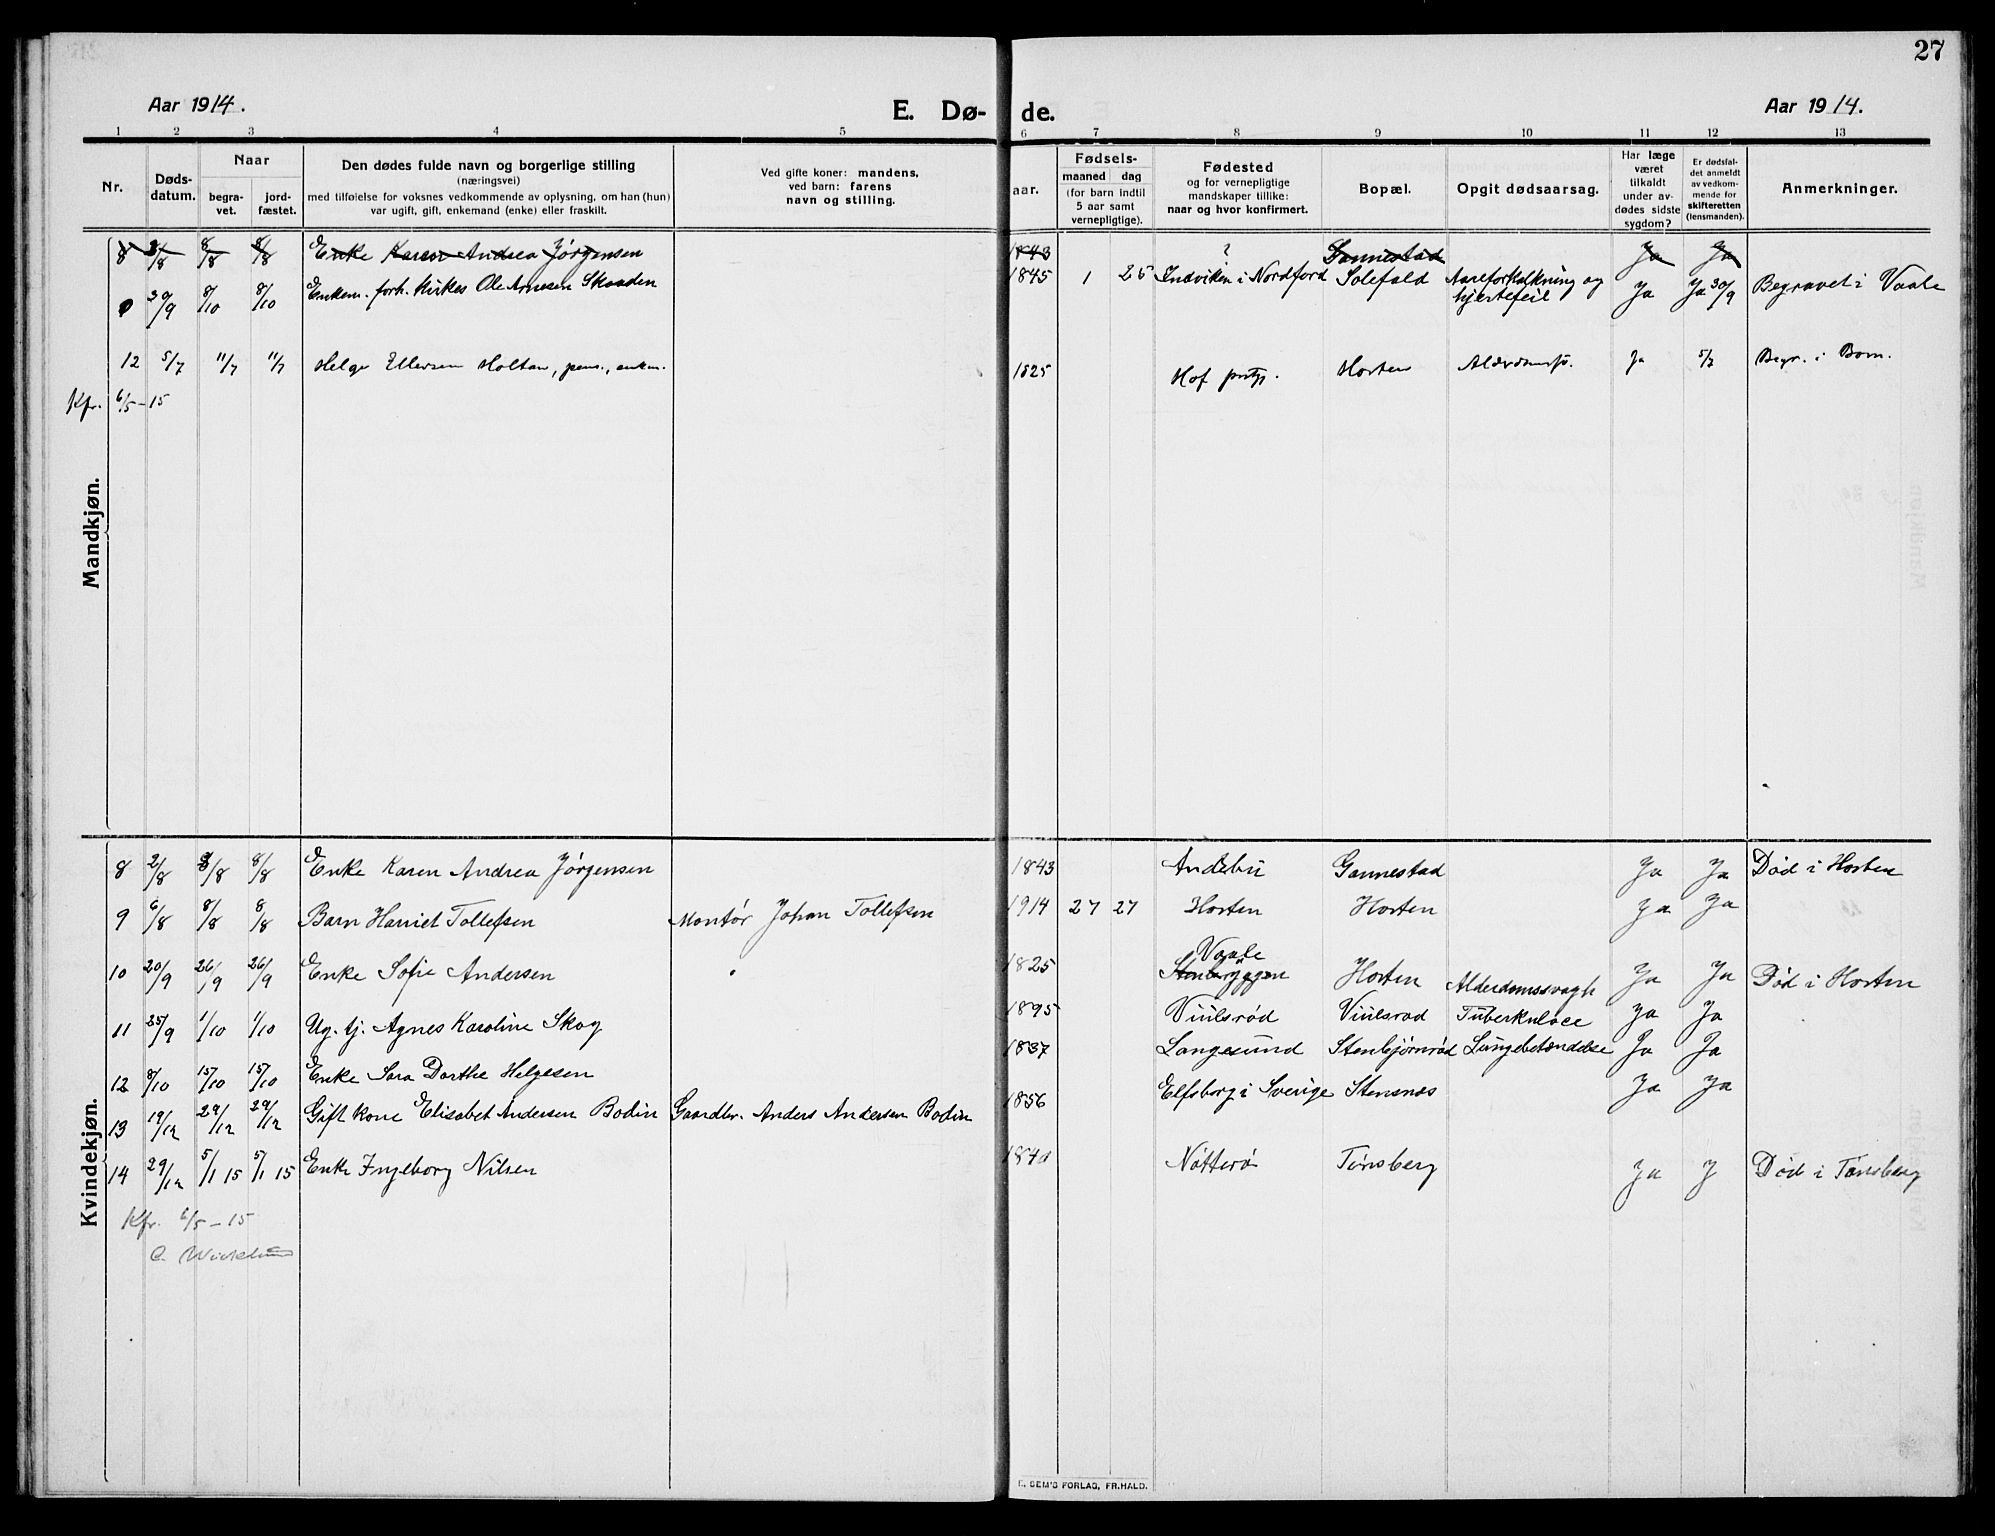 27
Aar 1914.
E. Dø- de.
Aar 1914.
1 2 3 4 5 6 7 8 9 10 11 12 13
Nr.
Døds-
datum.
Naar
begra-
vet.
jord-
fæstet.
Den dødes fulde navn og borgerlige stilling
(næringsvei)
med tilføielse for voksnes vedkommende av oplysning, om han (hun)
var ugift, gift, enkemand (enke) eller fraskilt.
Ved gifte koner: mandens,
ved barn: farens
navn og stilling.
aar.
Fødsels-
maaned dag
(for barn indtil
5 aar samt
vernepligtige).
Fødested
og for vernepligtige
mandskaper tillike:
naar og hvor konfirmert.
Bopæl.
Opgit dødsaarsag.
Har læge
været
tilkaldt
under av-
dødes sidste
sygdom?
Er dødsfal-
det anmeldt
av vedkom-
mende for
skifteretten
(lensmanden).
Anmerkninger.
Mandkjøn.
8 2/8 8/8 8/8 Enke Karen Andrea Jørgensen 1843 ? Gannestad Ja Ja
30/9 8/10 8/10 Enkem. forh. Kirkes. Ole Arnesen Skaaden 1845 1 25 Indviken i Nordfjord Solefald Aareforkalkning og hjertefeil Ja Ja 30/9 Begravet i Vaale
12 5/7 11/7 11/7 Helge Ellevsen Holtan, pens., enkem. 1825 Hof prstgj. Horten Alderdomssv. Ja 5/7 Begr. i Born.
Kfr. 6/5-15
Kvindekjøn.
8 2/8 8/8 8/8 Enke Karen Andrea Jørgensen 1843 Andebu Gannestad Ja Ja Død i Horten
9 6/8 8/8 8/8 Barn Harriet Tollefsen Montør Johan Tollefsen 1914 27 27 Horten Horten Ja Ja
10 20/9 26/9 26/9 Enke Sofie Andersen 1825 Vaale Stenbryggen Horten Alderdomssvagh Ja Ja Død i Horten
11 25/9 1/10 1/10 Ug. tj. Agnes Karoline Skog 1895 Viulsrød Viulsrød Tuberkulose Ja Ja
12 8/10 15/10 15/10 Enke Sara Dorthe Helgesen 1837 Langesund Stenbjørnrød Lungebetændelse Ja Ja
13 19/12 29/12 29/12 Gift kone Elisabet Andersen Bodin Gaardbr. Anders Andersen Bodin 1856 Elfsborg i Sverige Stensnæs Ja Ja
14 29/12 5/1 15 5/1 15 Enke Ingeborg Nilsen Nøtterø Tønsberg Ja J Død i Tønsberg
Kfr. 6/5-15
E. SEM'S FORLAG, FR.HALD.